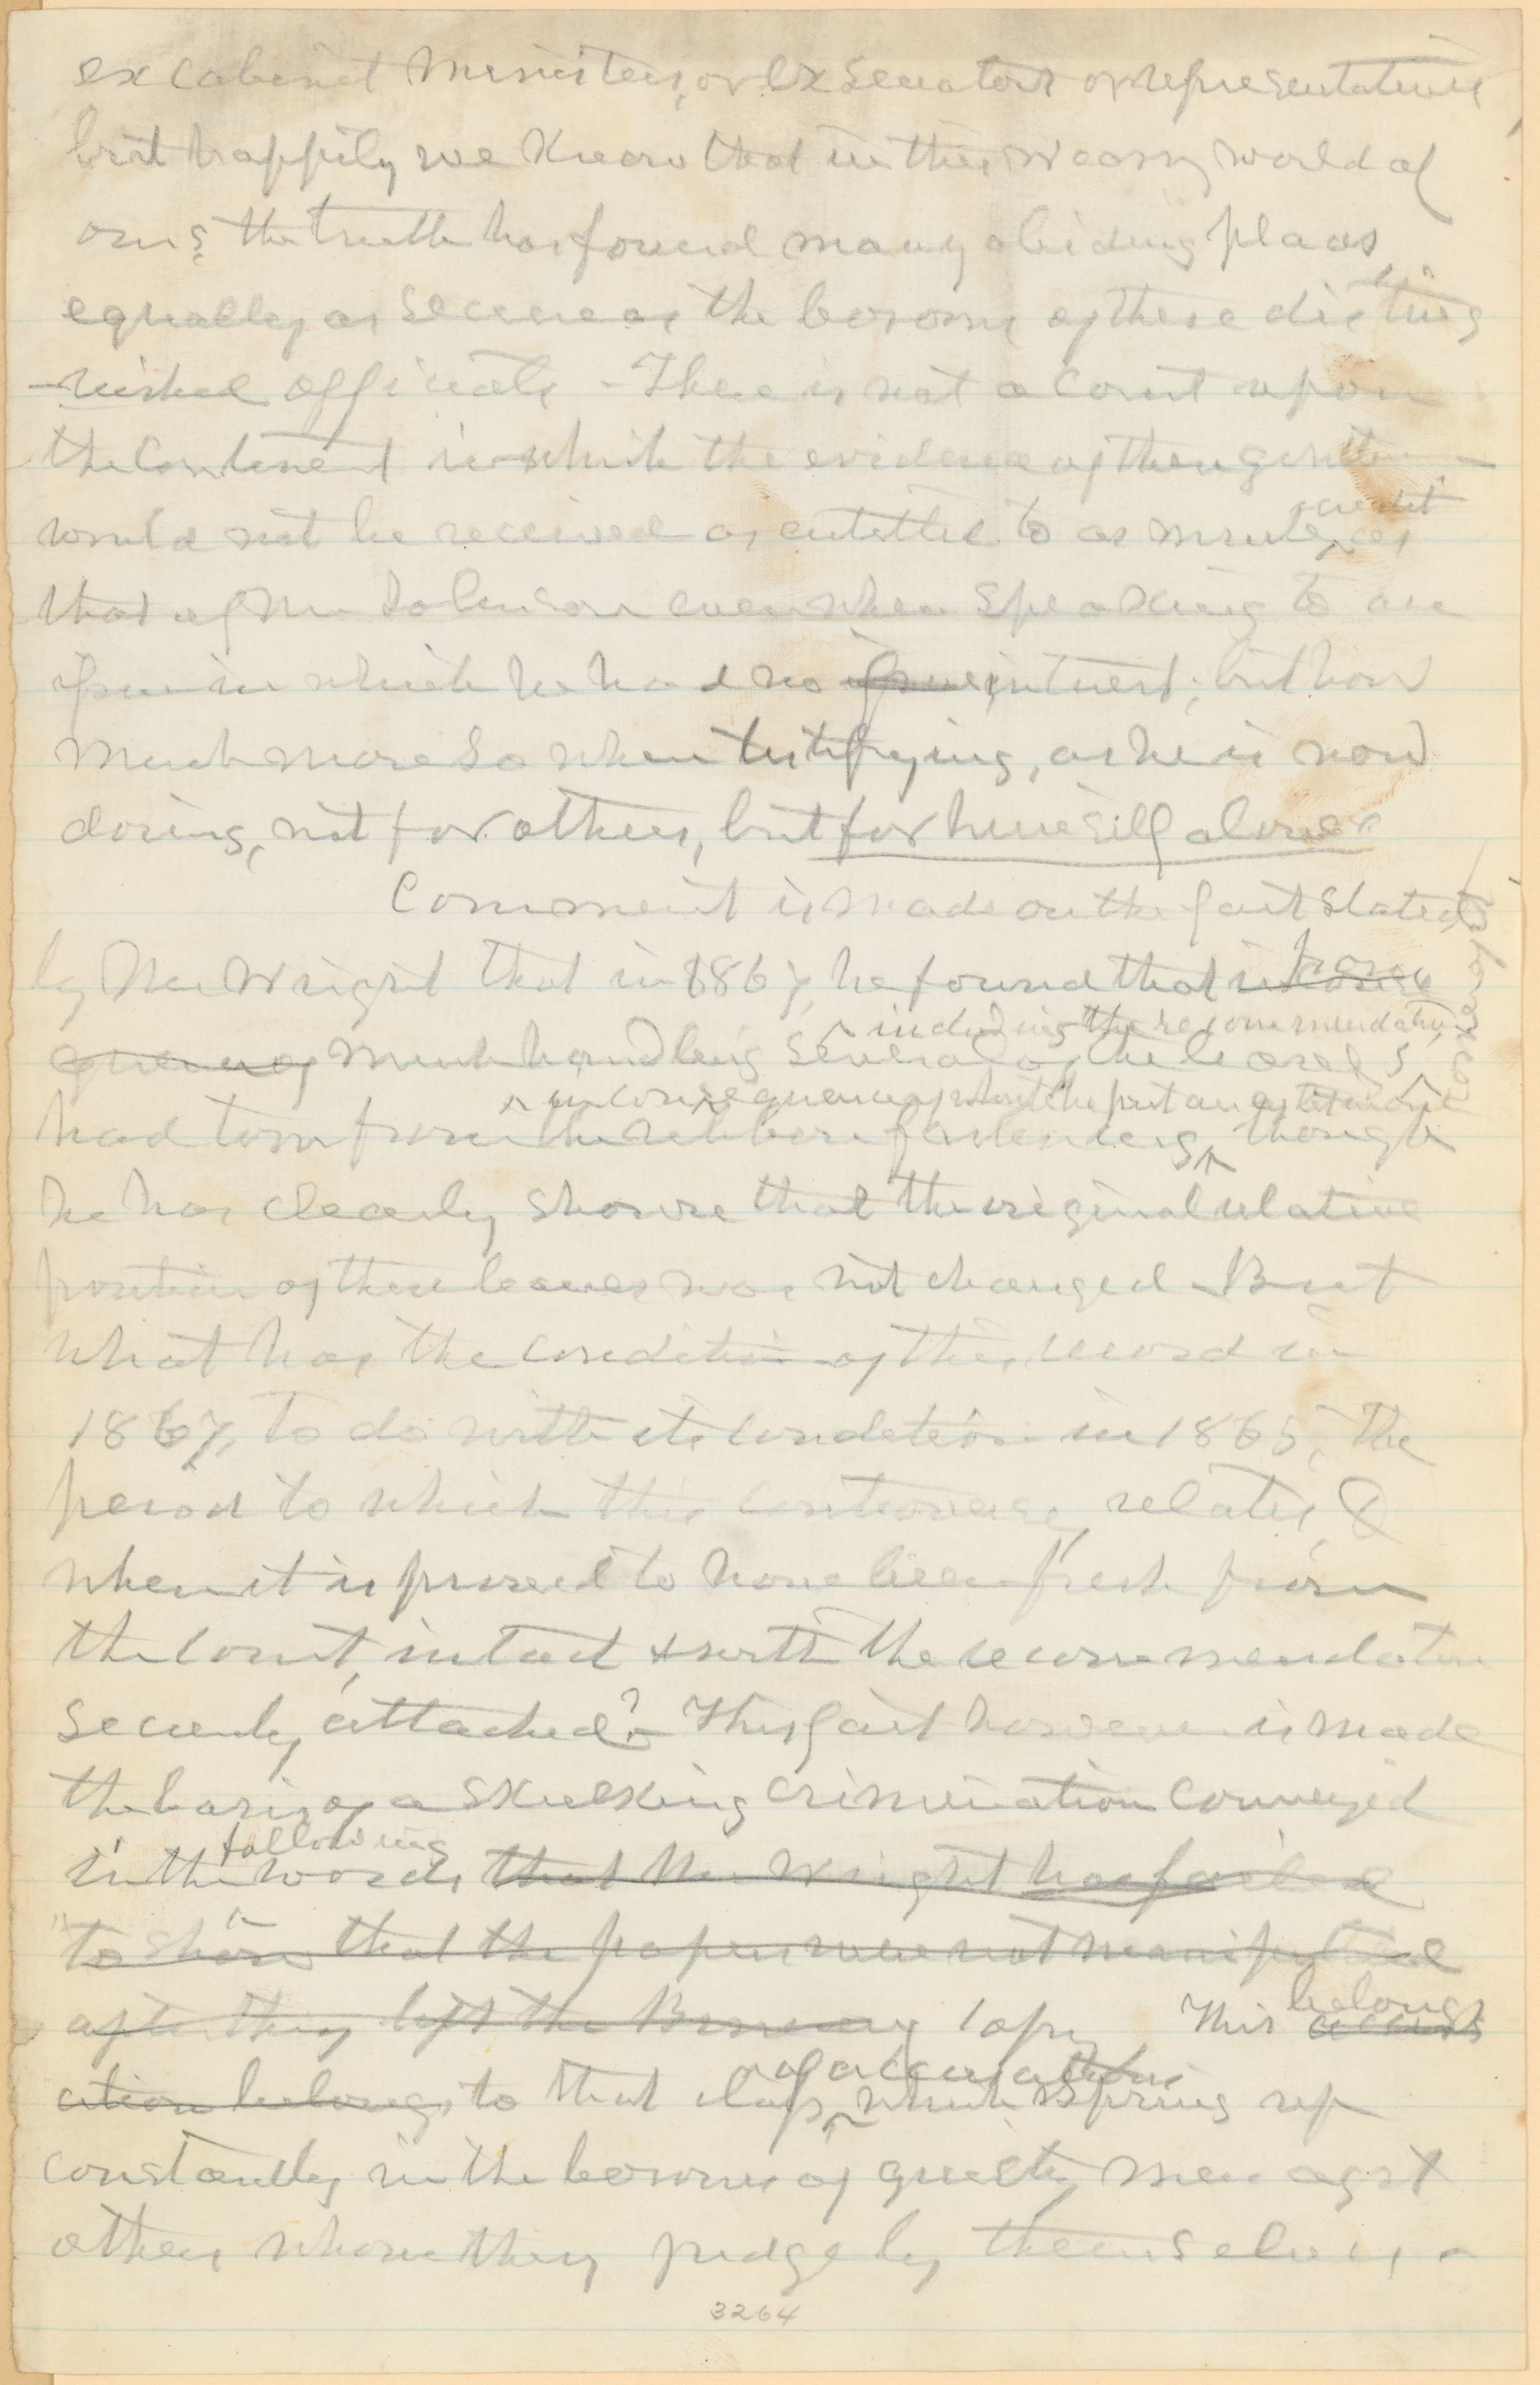 ex cabinet ministers, or ex Senators or representatives,
but happily we know that in this weary world of
ours, the truth has found many abiding places
equally as secure as the bosoms of these disting
-uished officials - There is not a court upon
the Continent in which the evidence of these gentlemen
would not be received as entitled to as much credit as
that of Mr Johnson even when speaking to an
issue in which he had no issue interest; but how
much more so when testifying, as he is now
doing, not for others, but for himself alone.
Comment is made on the fact stated
by Mr Wright that in 1867, he found that in conse
quence of much handling several of the leaves
including the recommendation,
had torn from the ribbon fastening, though
in consequence of
he has clearly shown that the original relative
position of these leaves was not changed - But
what has the condition of this record in
1867, to do with its condition in 1865, the
period to which this controversy relates, &
when it is proved to have been fresh from
the court, intact & with the recommendation
securely attached? - This fact however is made
the basis of a skulking crimination conveyed
in the following words, that Mr Wright has failed
"to show" that the papers were not manipulated
after they left the Bureau copy This belongs
ation belongs to that class of accusations which spring up
constantly in the bosoms of guilty men agst
others whom they judge by themselves, -
3264